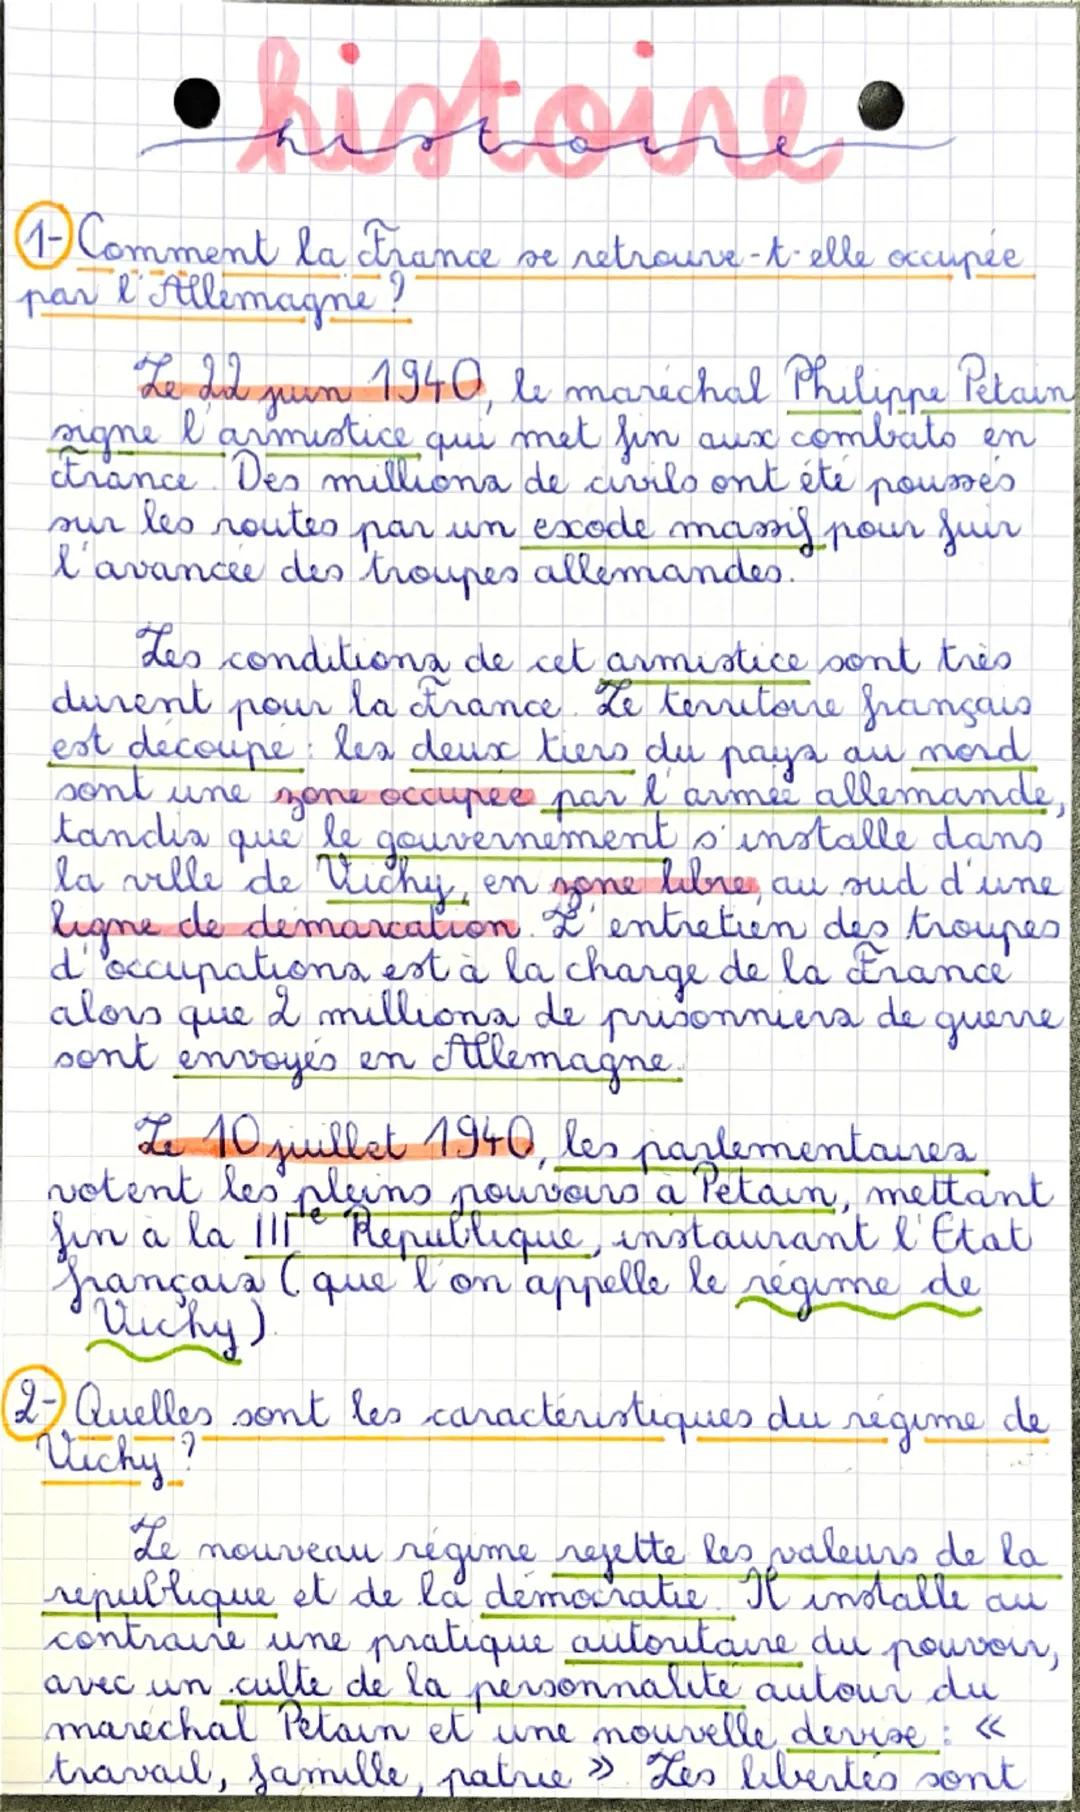 histoire
histoire
1- Comment la France se retrouve-t-elle occupée
par l'Allemagne ?
Le 22 juin 1940, le maréchal Philippe Pétain
signe l'armistice qui met fin aux combats en
France. Des millions de civils ont été poussés
sur les routes par un exode massif pour fuir
l'avancée des troupes allemandes.
Les conditions de cet armistice sont très
durent pour la France. Le territoire français
est découpé : les deux tiers du pays au nord
sont une zone occupée par l'armée allemande,
tandis que le gouvernement s'installe dans
la ville de Vichy, en zone libre, au sud d'une
ligne de démarcation. L'entretien des troupes
d'occupations est à la charge de la France
alors que 2 millions de prisonniers de guerre
sont envoyés en Allemagne.
Le 10 juillet 1940, les parlementaires
votent les pleins pouvoirs à Pétain, mettant
fin à la IIIe République, instaurant l'État
français (que l'on appelle le régime de
Vichy).
2- Quelles sont les caractéristiques du régime de
Vichy ?
Le nouveau régime rejette les valeurs de la
république et de la démocratie. Il installe au
contraire une pratique autoritaire du pouvoir,
avec un culte de la personnalité autour du
maréchal Pétain et une nouvelle devise : «
travail, famille, patrie » Les libertés sont